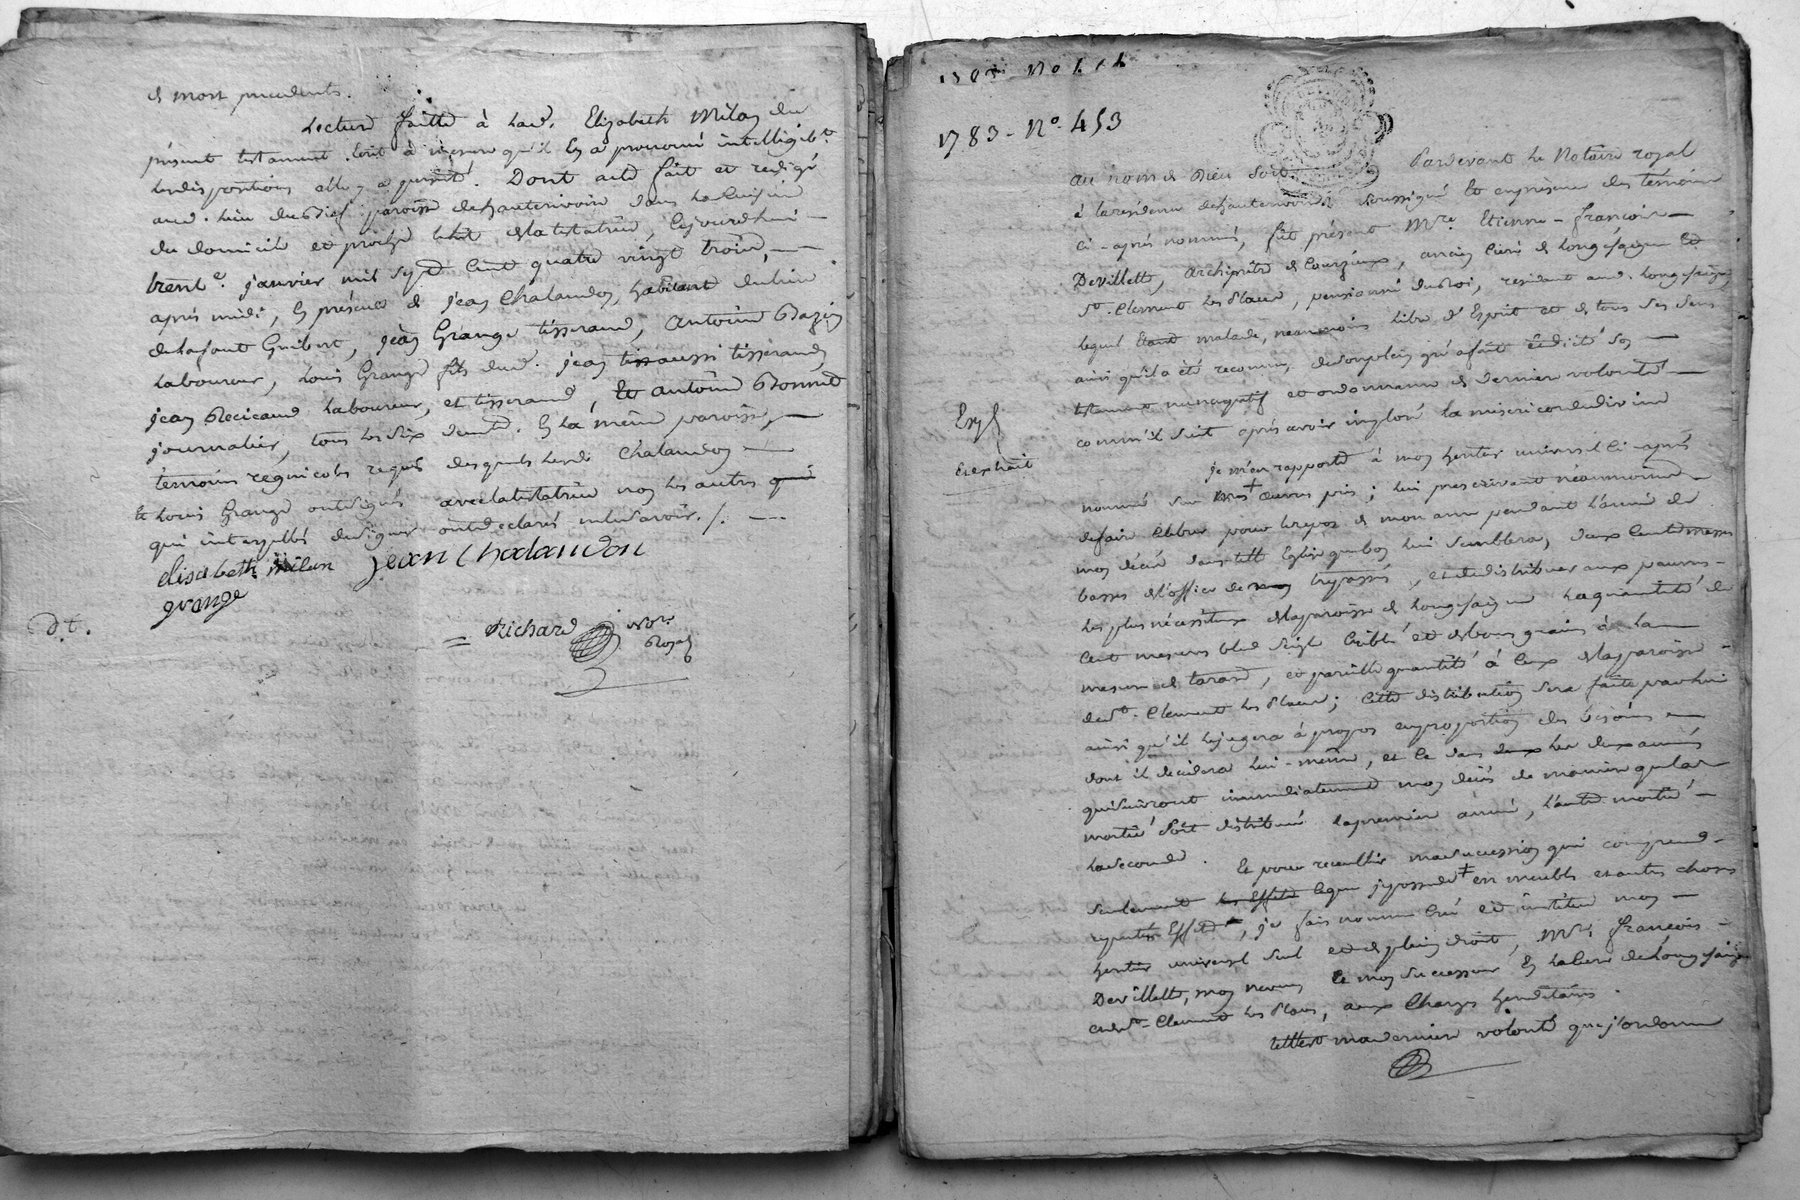 et mort precedents.
Lecture faitte à lad. Elizabeth Milan du
présent testament écrit à mesure qu'il en a prononcé intelligiblt
les dispositions elle y a persisté. Dont acte fait et redigé
aud. lieu du paroisse de hauterivoire dans la cuisine
du domicile et proche le lit de la testatrice, cejourdhui
trente. janvier mil sept cent quatre vingt trois,
après midi, en présence de jean Chalandon, habitant du lieu
de lafont Guibert, jean Grange tisserand, Antoine Bazin
laboureur, Louis Grange fils dud. jean aussi tisserand,
jean Recicaud laboureur, et tisserand, et antoine Bonnet
journalier, tous les six demt. en la même paroisse,
témoins régnicoles requis desquels lesds Chalandon
et Louis Grange ont signés avec la testatrice non les autres qui
qui interpellés de signer ont declarés ne le savoir ./.
elisabeth milan jean Chalandon
grange
D.t.
= Richard Nore. Royal
1783 - No. 453
au nom de Dieu soit. Pardevant le Notaire royal
à la résidence de hauterivoire soussigné et en présence des témoins
ci-après nommés, fut présent Mre. Etienne-françois
Devillette, archiprêtre de Courzieux, ancien curé de Longessaigne et
St. Clement les Places, pensionné du Roi, résidant aud. Longessaigne,
lequel étant malade, néanmoins libre d'Esprit et de tous ses sens
ainsi qu'il a été reconnu, de son plein gré a fait et dicté son
testament nuncupatif et ordonnance de derniere volonté
comm'il suit après avoir imploré la misericorde divine
Expé
Et extrait
je m'en rapporte à mon heritier universel ci-après
nommé sur mes + œuvres pies; lui prescrivant néanmoins
de faire celebrer pour le repos de mon ame pendant l'année de
mon décès dans telle Eglise que bon lui semblera, deux cents messes
basses de l'office des trépassés, et de distribuer aux pauvres
les plus nécessiteux de la paroisse de Longessaigne la quantité de
cent mesures bled seigle criblé et de bons grains à la
mesure de tarare, et pareille quantité à ceux de la paroisse
de St. Clement les Places; cette distribution sera faite par lui
ainsi qu'il le jugera à propos en proportion des bésoins
dont il decidera lui-même, et ce dans deux les deux années
qui suivront immediatement mon décès de maniere que la
moitié soit distribuée la premiere année, l'autre moitié
la seconde. Et pour recueillir ma succession qui comprend
seulement les Effets ce que je possede + en meubles et autres choses
reputées Effets, je fais nomme créé et institue mon
heritier universel seul et de plein droit, Mre. françois
Devillette, mon neveu et mon successeur en la cure de Longessaigne
et de St. Clement les Places, aux Charges hereditaires.
telle est ma derniere volonté que j'ordonne